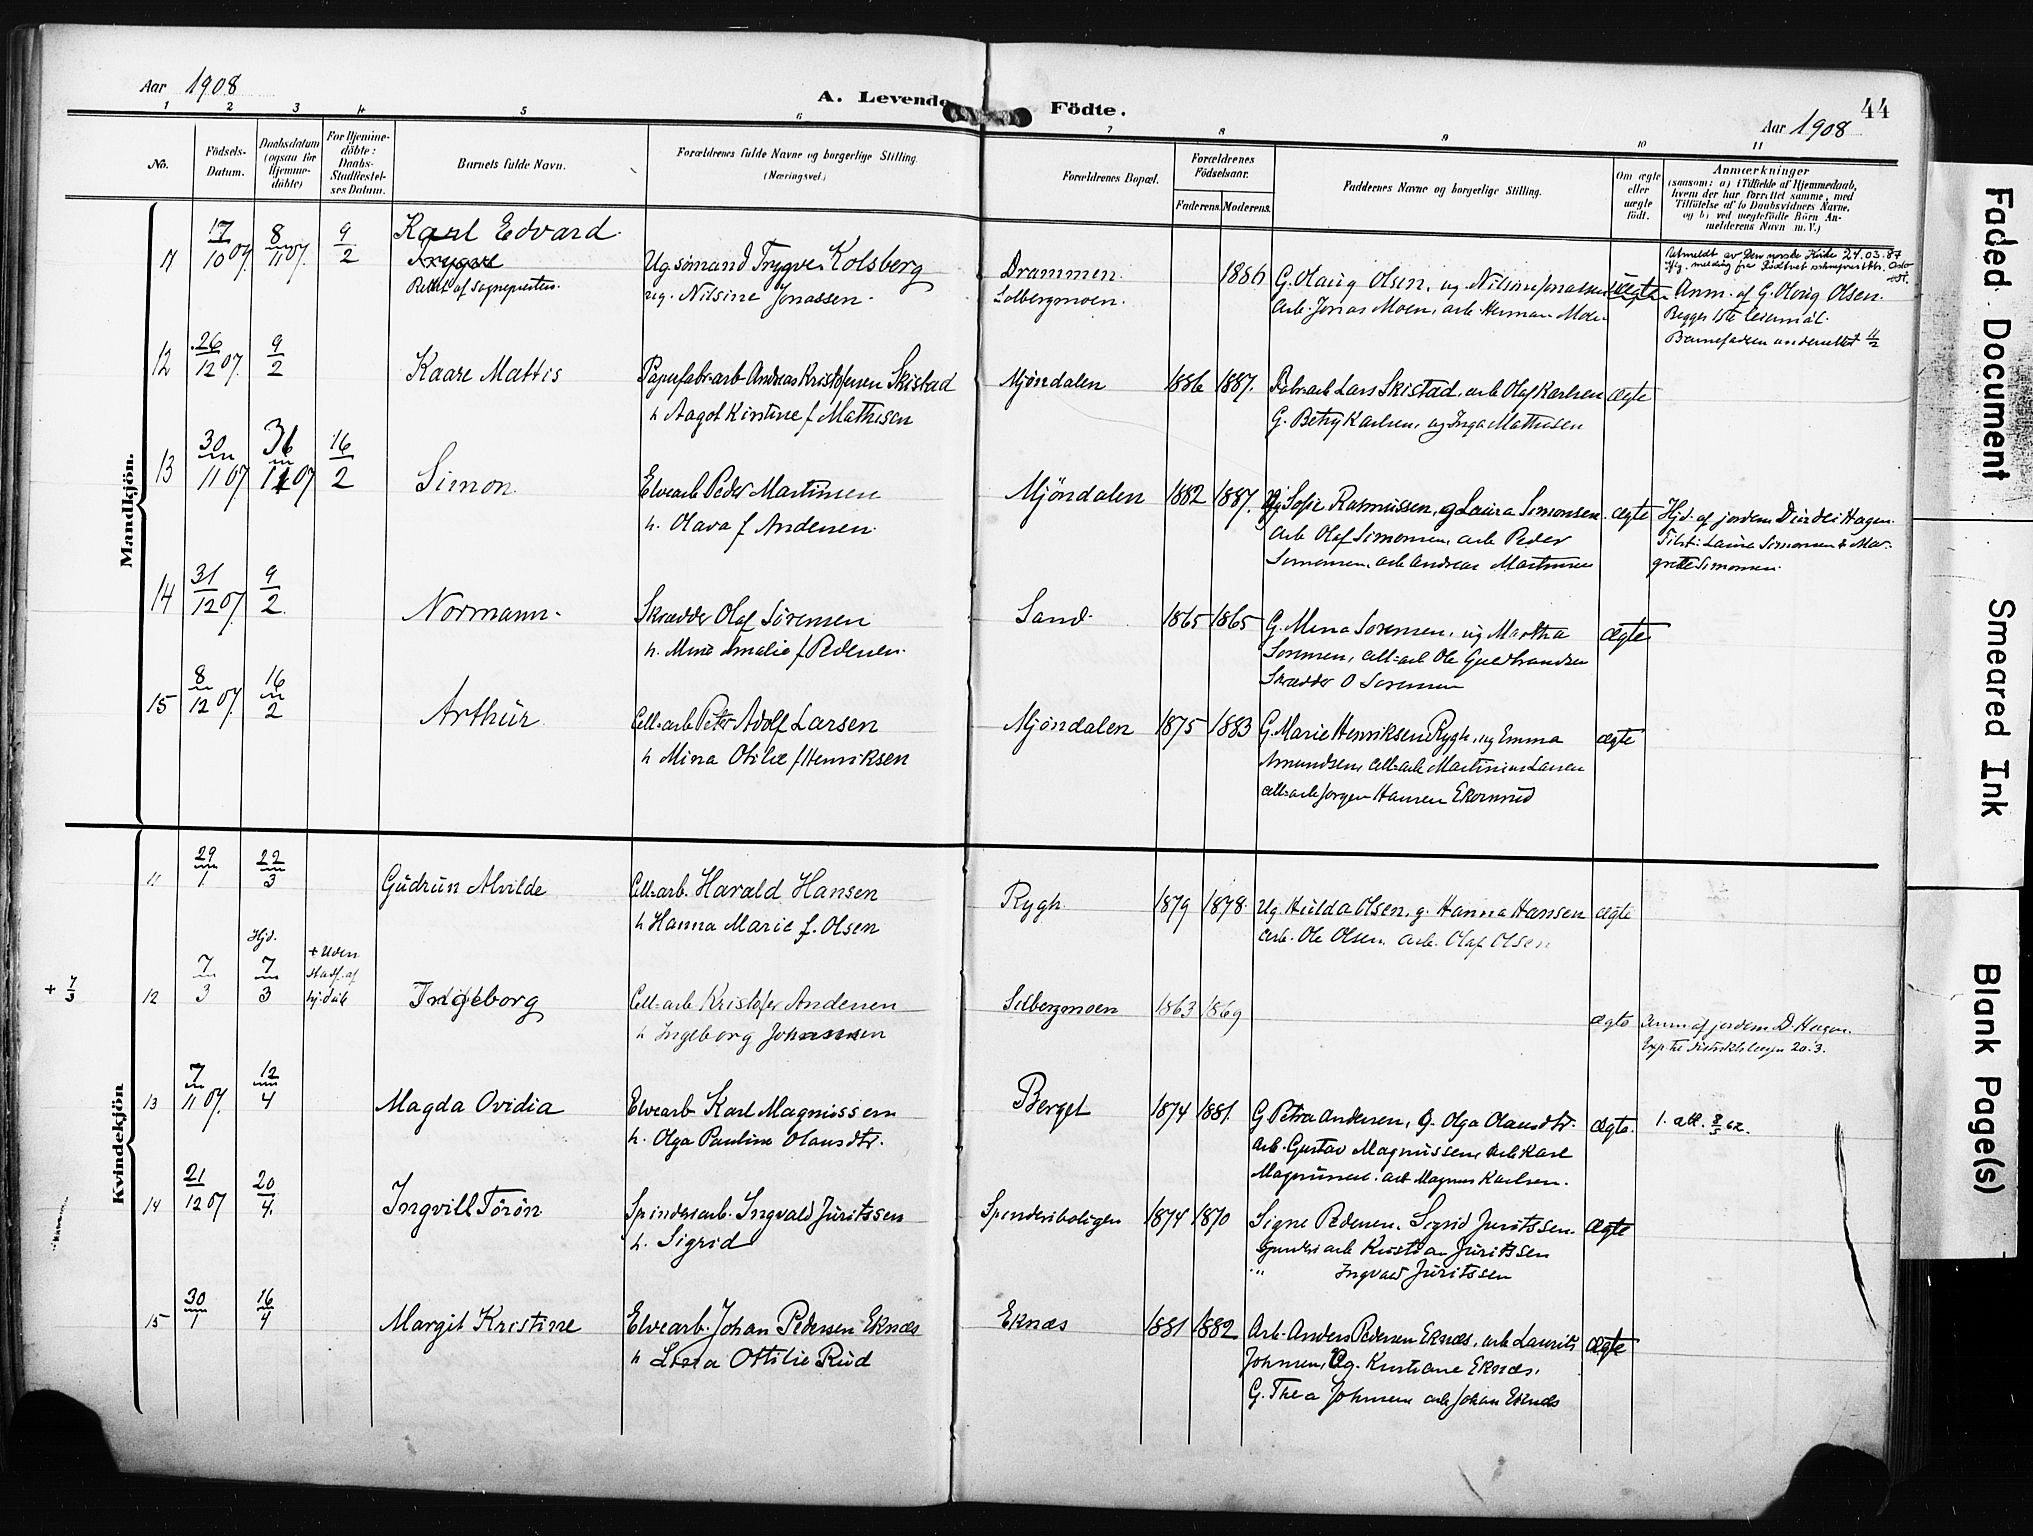 Aar 1908
A. Levende Födte.
44
Aar 1908
1 2 3 4 5 6 7 8 9 10 11
No.
Födsels-Datum.
Daabsdatum (ogsaa for Hjemme-döbte)
For Hjemme-döbte: Daabs-Stadfæstel-ses Datum.
Barnets fulde Navn.
Forældrenes fulde Navne og borgerlige Stilling. (Næringsvei.)
Forældrenes Bopæl.
Forældrenes Födselsaar.
Faderens. Moderens.
Faddernes Navne og borgerlige Stilling.
Om ægte eller uægte födt.
Anmærkninger
(saasom: a) i Tilfælde af Hjemmedaab,
hvem der har forrettet samme, med
Tilföielse af to Daabsvidners Navne,
og b) ved uægtefödte Börn An-
melderens Navn m. V.)
Mandkjön.
11 17/10 07. 8/11 07. 9/2 Karl Edvard Ug. sömand Trygve Kolsberg Drammen. 1886 G. Olaug Olsen, ug Nilsine Jonassen uægte
Trygve
Rettet af sognepresten. ug. Nilsine Jonassen. Solbergmoen. arb. Jonas Moen, arb Herman Moen
Utmeldt av Den norske Kirke 24.03.87
Anm. af G. Olaug Olsen.
Begges 1ste leiermål.
Barnefaderen underrettet 11/2
12 26/12 07. 9/2 Kaare Mattis Papirfabr.arb Andreas Kristofersen Skistad Mjöndalen 1886 1887. Fabr.arb Lars Skistad, arb Olaf Karlsen ægte
h. Aagot Kirstine f Mathisen G. Betsy Karlsen, ug Inga Mathisen
13 30/11 07 31/12 07 16/2 Simon Elvearb Peder Martinsen Mjöndalen 1882 1887. Ug Sofie Rasmussen, g Laura Simonsen ægte Hjd. af jordem Dordei Hagen
h. Olava f Andersen. arb Olaf Simonsen, arb Peder Tilst: Laura Simonsen & Mar-
Simonsen, arb Andreas Martinsen grette Simonsen
14 31/12 07 9/2. Normann. Skrædder Olaf Sörensen Sand. 1865 1865 G. Mina Sorensen, ug Martha ægte
h. Mina Amalie f Pedersen. Sorensen, cell=arb Ole Guldbrandsen
Skrædder O Sorensen
15 8/12 07. 16/2 Arthur Cell=arb Peter Adolf Larsen Mjöndalen 1875 1883 G. Marie Henriksen Rygh, ug Emma ægte
h Mina Otilie f Henriksen Amundsen, cell=arb Martinius Larsen
cell=arb Jorgen Hansen Ekornrud
Kvindekjön
11 29/1 22/3 Gudrun Alvilde Cell=arb. Harald Hansen Rygh. 1879 1878. Ug. Hulda Olsen, g. Hanna Hansen ægte
h Hanna Marie f. Olsen arb. Ole Olsen, arb. Olaf Olsen
+ 7/3 12 7/3 Hjd. 7/3 + Uden stadf. af hjdåb Ingeborg Cell=arb Kristofer Andersen Solbergmoen 1863 1869 ægte Anm af jordem D. Hagen.
h Ingeborg Johannsen Exp. til distriktslægen 20.3.
13 7/11 07. 12/4 Magda Ovidia Elvearb Karl Magnussen Berget 1874 1881. G Petra Andersen, G. Olga Olausdtr. ægte. 1. att. 8/5 62.
h. Olga Pauline Olausdtr. arb. Gustav Magnussen, arb Karl
Magnussen. arb Magnus Karlsen.
14 21/12 07 20/4. Ingvill Törön Spinderiarb. Ingvald Juritssen Spinderiboligen 1874 1870 Signe Pedersen, Sigrid Juritssen. ægte
h. Sigrid Spinderi arb Kristian Juritssen
" Ingvald Juritssen
15 30/1 16/4 Margit Kristine Elvearb. Johan Pedersen Eknæs Eknæs 1881 1882 Arb. Anders Pedersen Eknæs, arb Laurits ægte
h Lina Ottilie Rud Johnsen, Ug. Kristiane Eknæs,
G. Thea Johnsen arb Johan Eknæs
Faded Document
Smeared Ink
Blank Page(s)